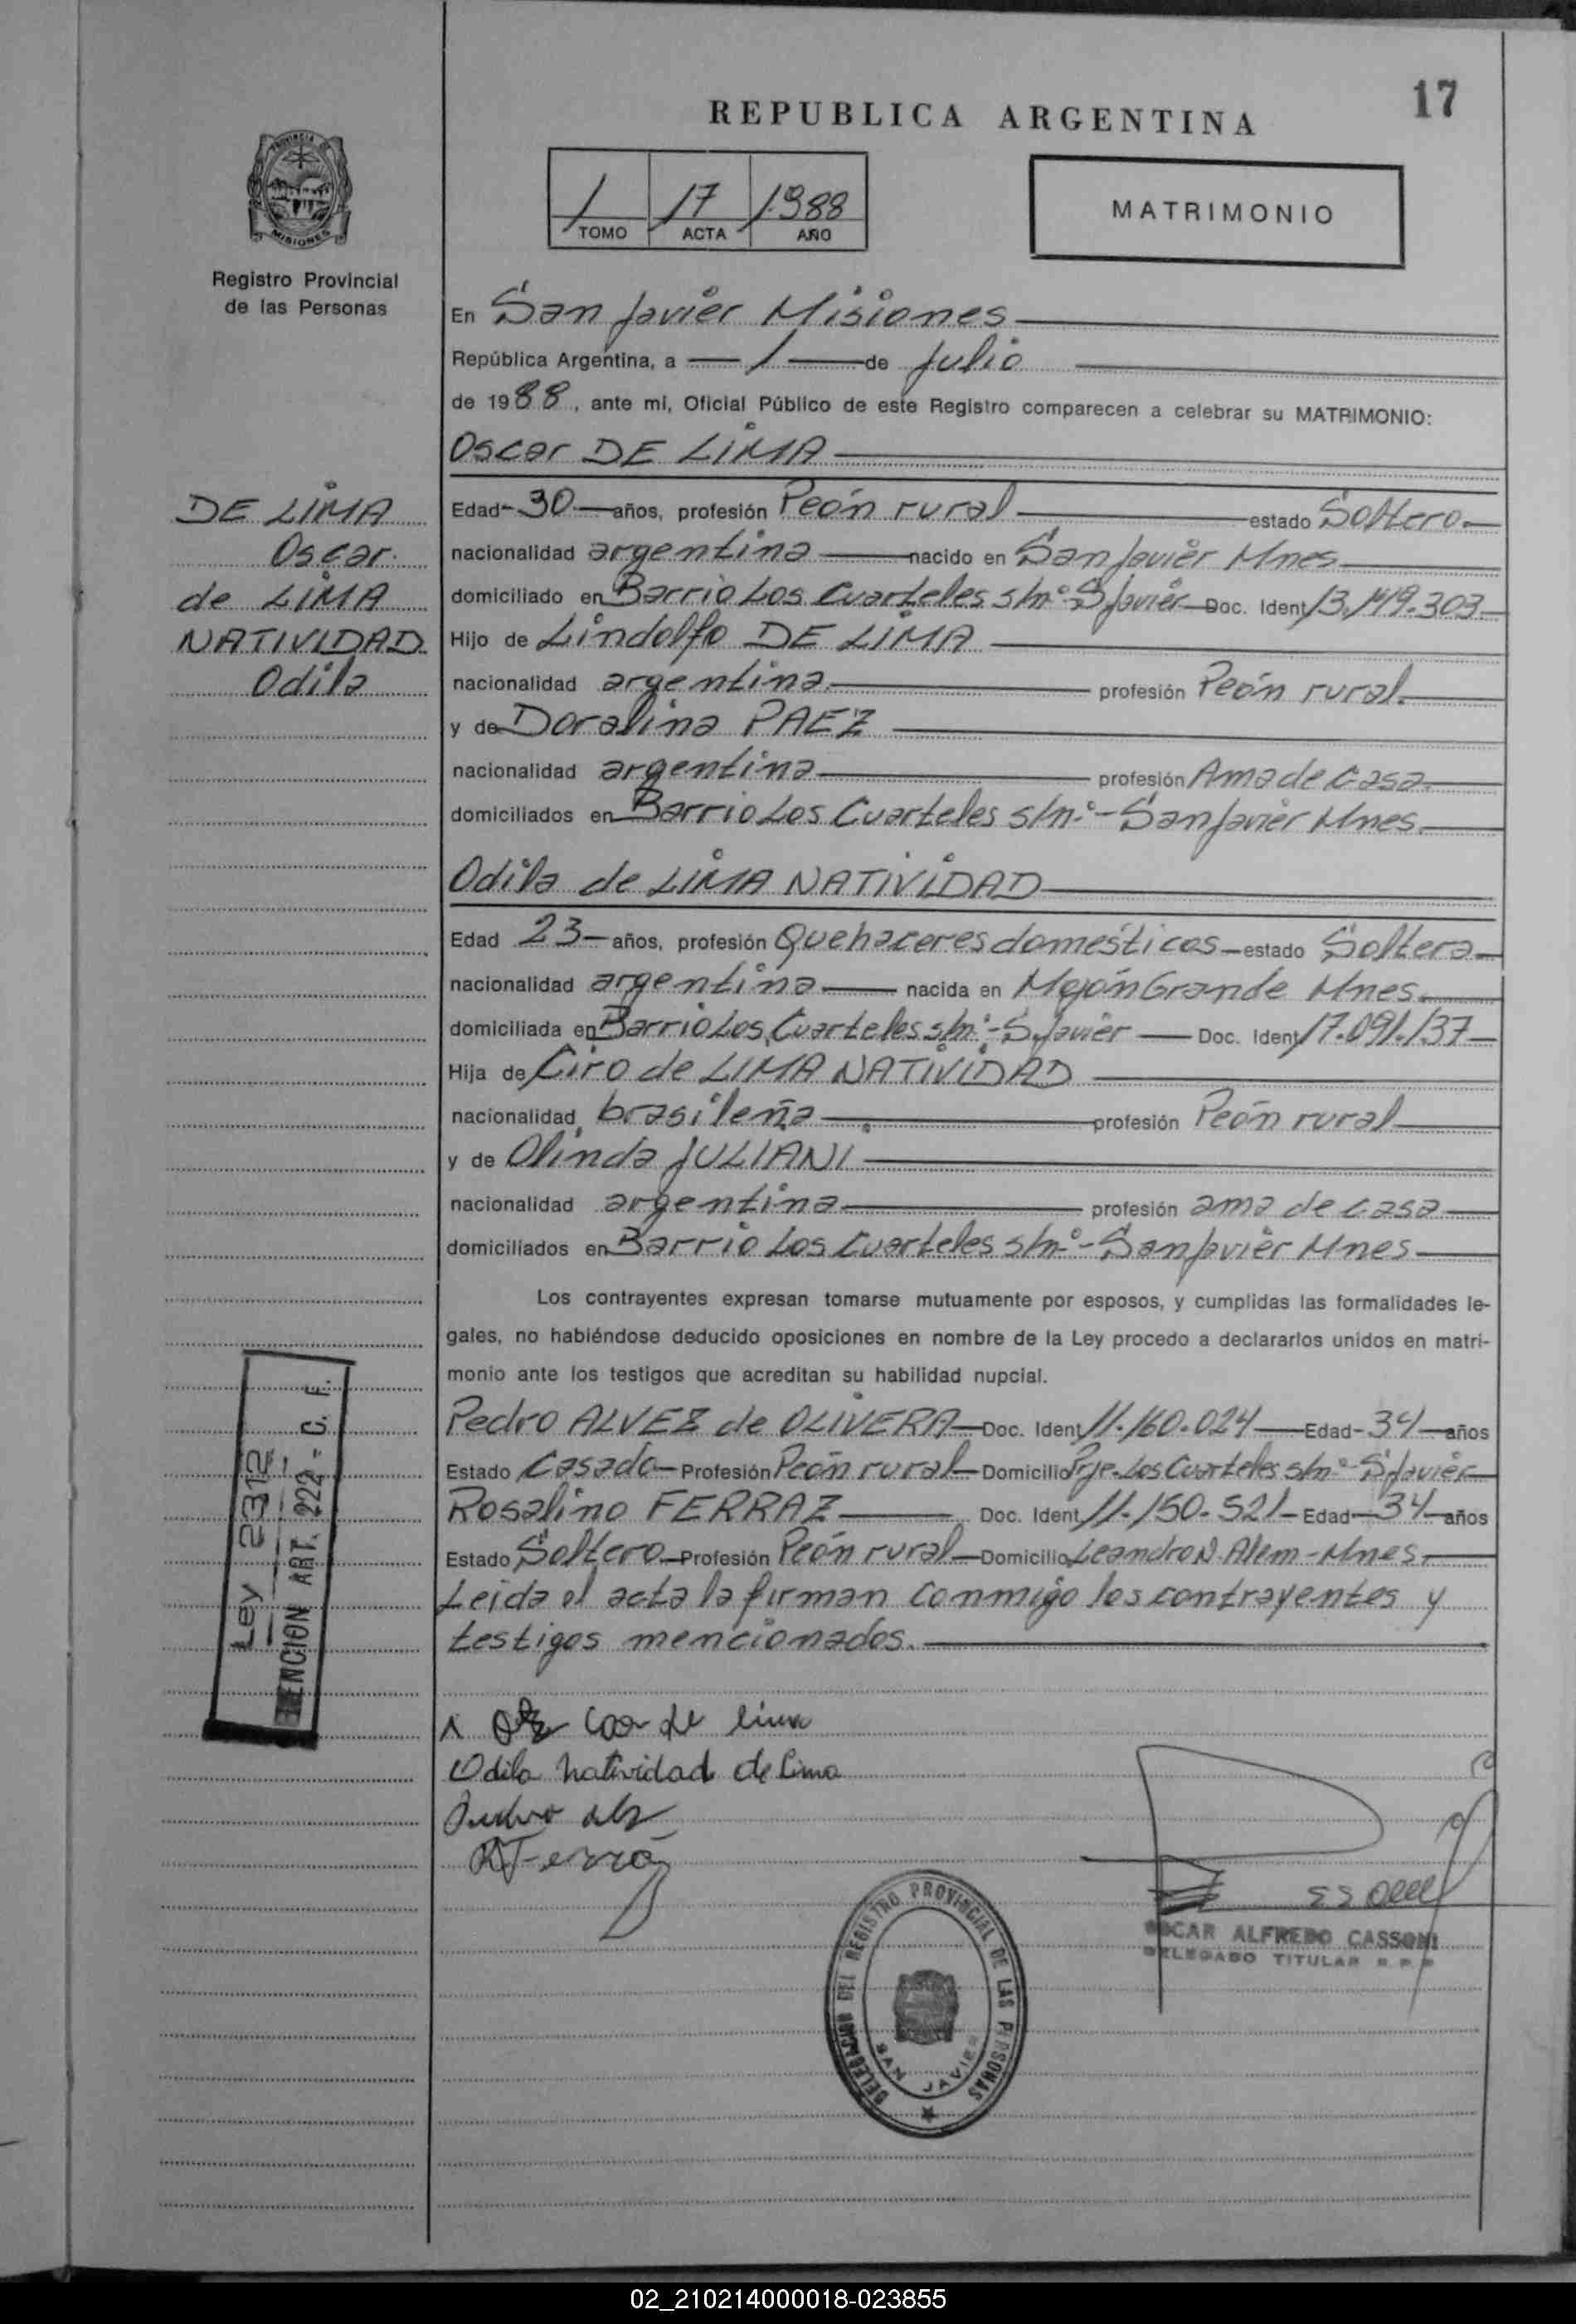 17
REPUBLICA ARGENTINA
1 17 1988
TOMO ACTA AÑO
MATRIMONIO
PROVINCIA DE
MISIONES
Registro Provincial
de las Personas
En San Javier Misiones
República Argentina, a 1 de Julio
de 1988, ante mi, Oficial Público de este Registro comparecen a celebrar su MATRIMONIO:
Oscar DE LIMA
DE LIMA
Oscar.
de LIMA
NATIVIDAD
Odila
Edad 30 años, profesión Peón rural estado Soltero
nacionalidad argentina nacido en San Javier Mnes
domiciliado en Barrio Los Cuarteles s/nº S Javier Doc. Ident 13.119.303
Hijo de Lindolfo DE LIMA
nacionalidad argentina profesión Peón rural.
y de Doralina PAEZ
nacionalidad argentina profesión Ama de casa
domiciliados en Barrio Los Cuarteles s/nº - San Javier Mnes
Odila de LIMA NATIVIDAD
Edad 23 años, profesión Quehaceres domésticos estado Soltera
nacionalidad argentina nacida en Mojón Grande Mnes.
domiciliada en Barrio Los Cuarteles s/nº - S. Javier Doc. Ident 17.091.137
Hija de Ciro de LIMA NATIVIDAD
nacionalidad brasileña profesión Peón rural
y de Olinda JULIANI
nacionalidad argentina profesión ama de casa
domiciliados en Barrio Los Cuarteles s/nº - San Javier Mnes
Los contrayentes expresan tomarse mutuamente por esposos, y cumplidas las formalidades le-
gales, no habiéndose deducido oposiciones en nombre de la Ley procedo a declararlos unidos en matri-
monio ante los testigos que acreditan su habilidad nupcial.
Pedro ALVEZ de OLIVERA Doc. Ident 11.160.024 Edad 34 años
Estado Casado Profesión Peón rural Domicilio Pje. Los Cuarteles s/nº - S Javier
Rosalino FERRAZ Doc. Ident 11.150.521 Edad 34 años
Estado Soltero Profesión Peón rural Domicilio Leandro N. Alem - Mnes.
Leida el acta la firman conmigo los contrayentes y
testigos mencionados.
Ley 2312
MENCION ART. 222 - C. F.
de lima
Odila Natividad de Lima
OSCAR ALFREDO CASSONI
DELEGADO TITULAR R. P. P
DELEGACION DEL REGISTRO PROVINCIAL DE LAS PERSONAS
SAN JAVIER
02_210214000018-023855